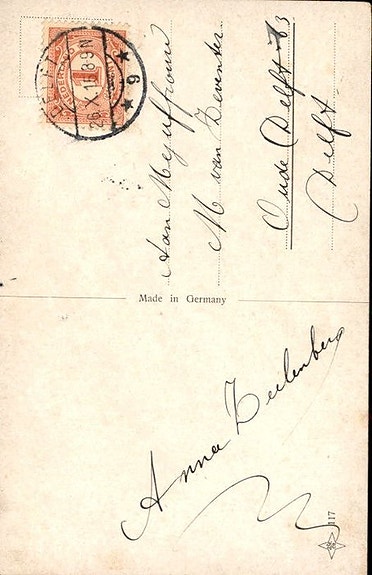 NEDERLAND
1
DELFT
26.X.11.8-9N
9
Aan Mejuffrouw
M. van Deventer
Oude Delft 63
Delft
Made in Germany
Anna
117